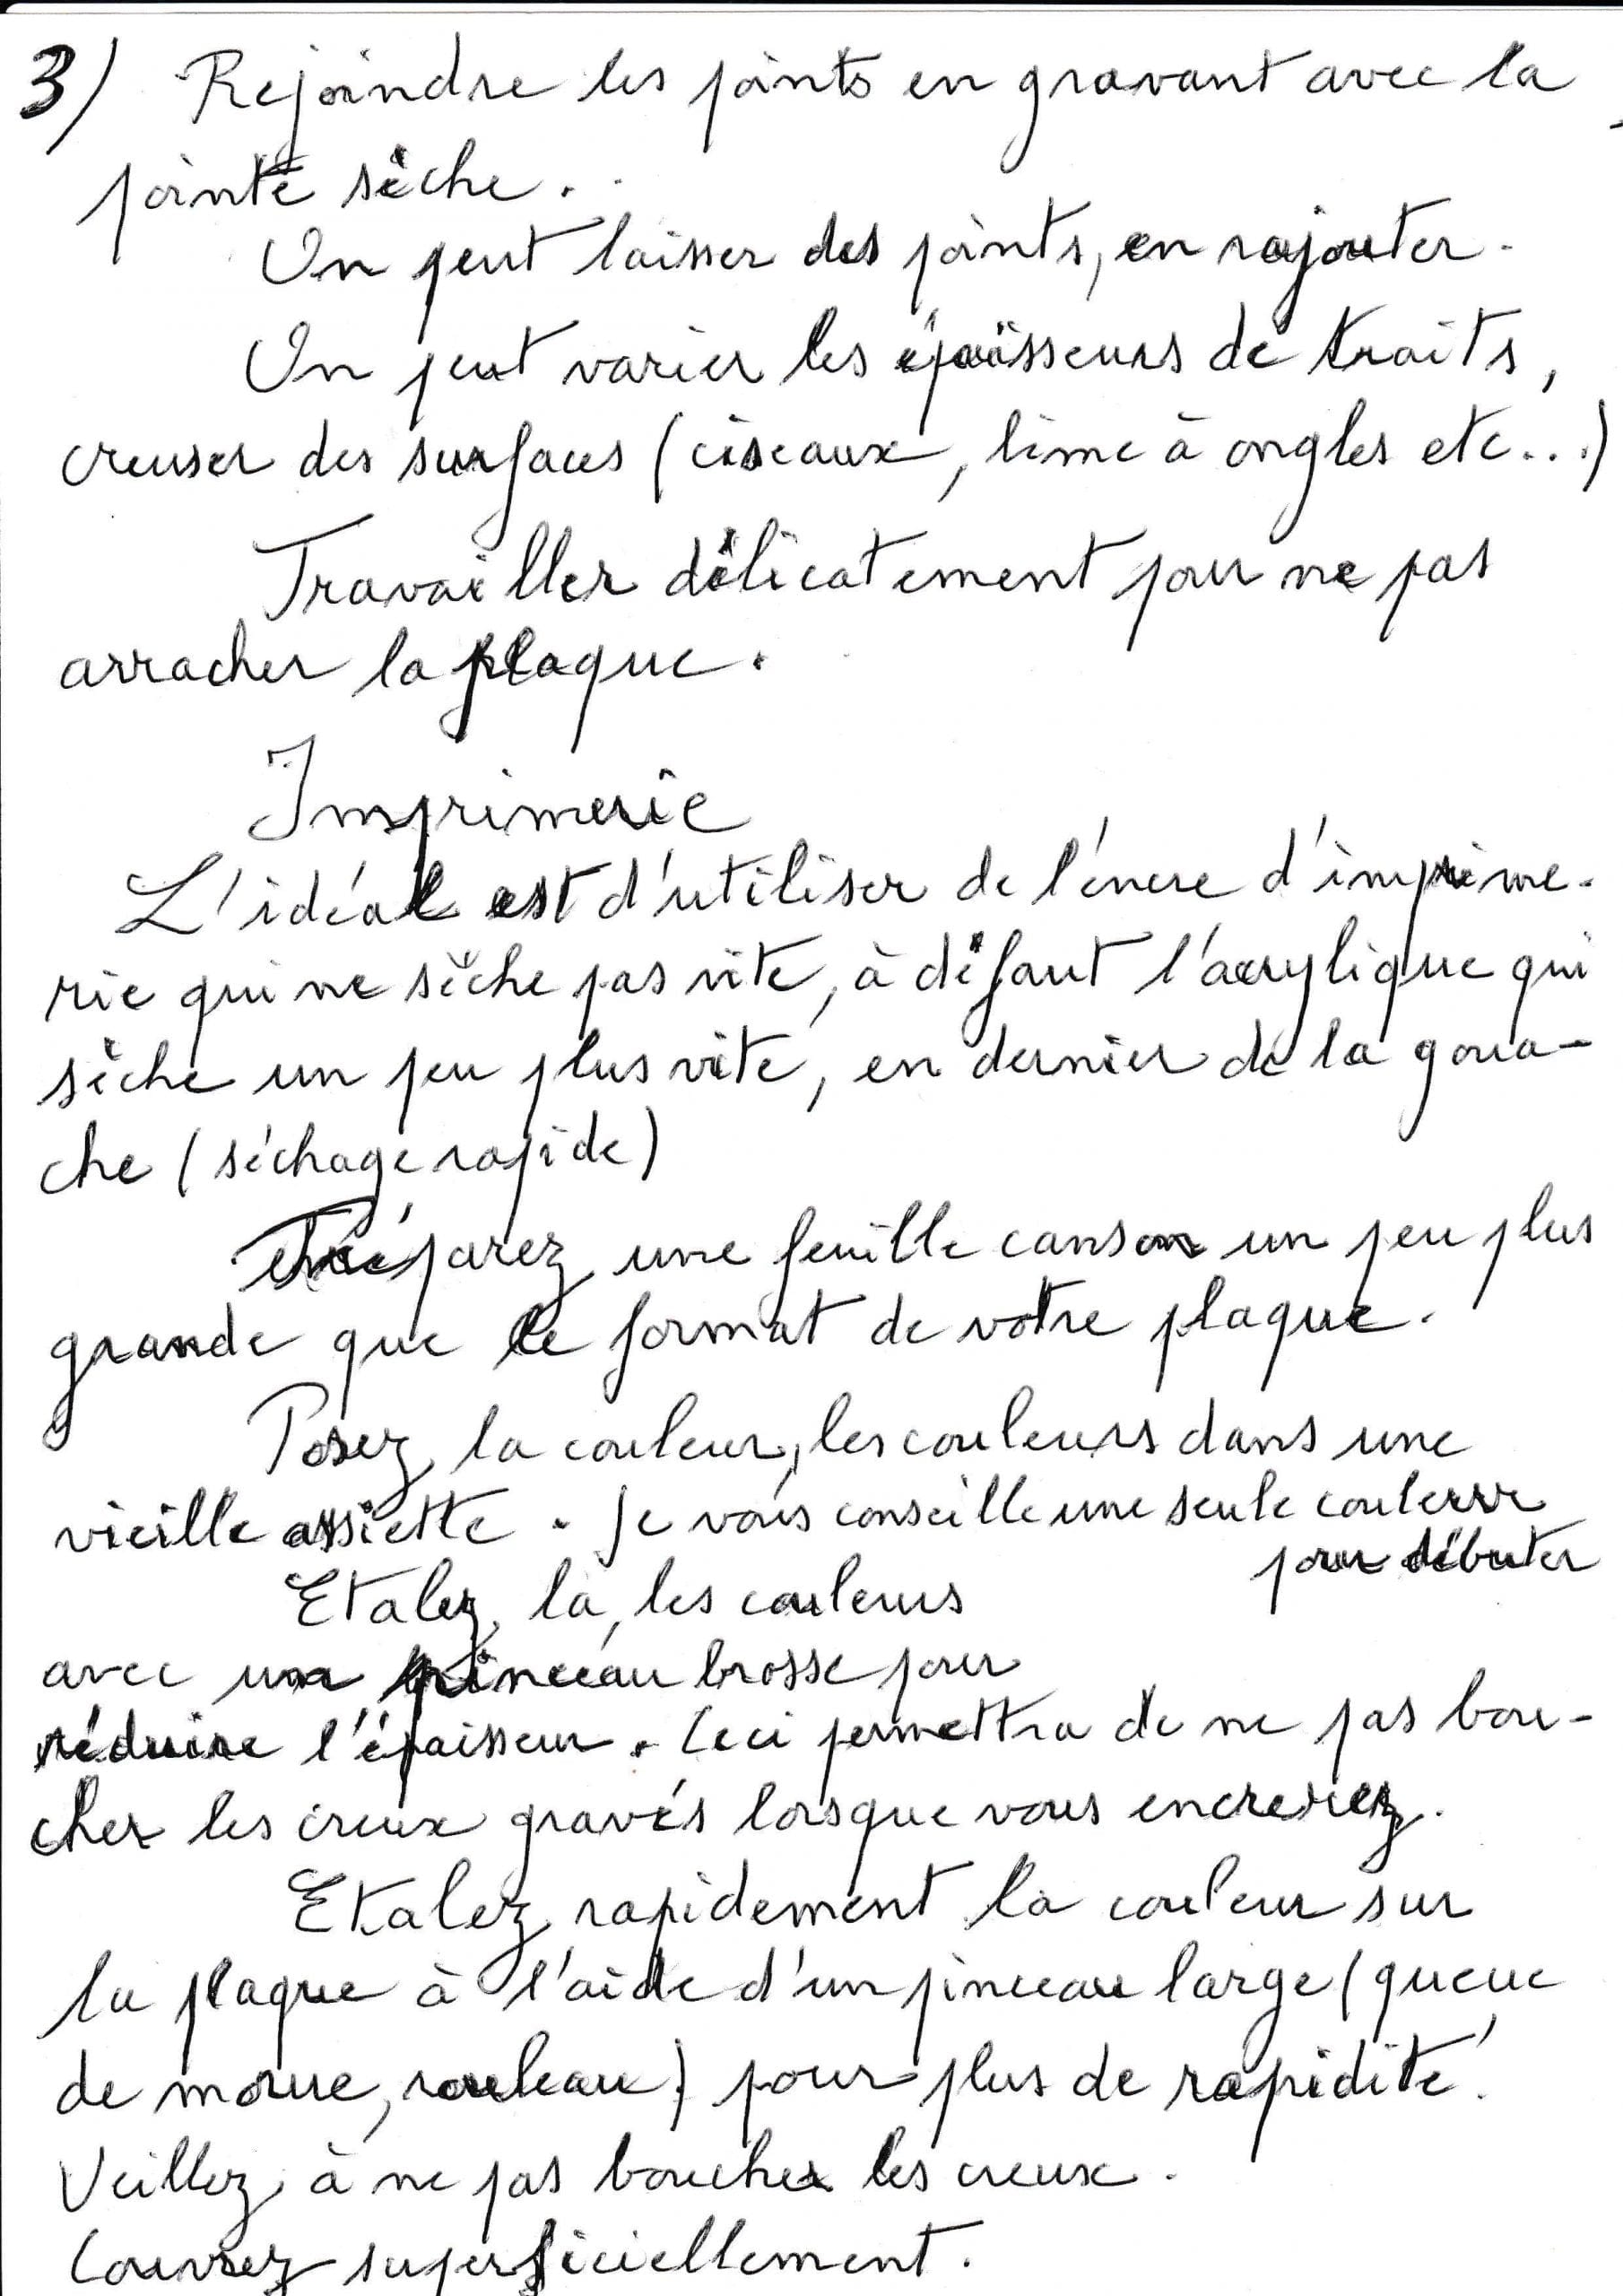 3) Rejoindre les points en gravant avec la
pointe sèche.
On peut laisser des points, en rajouter.
On peut varier les épaisseurs de traits,
creuser des surfaces (ciseaux, lime à ongles etc...)
Travailler délicatement pour ne pas
arracher la plaque.
Imprimerie
L'idéal est d'utiliser de l'encre d'imprime-
rie qui ne sèche pas vite, à défaut l'acrylique qui
sèche un peu plus vite, en dernier de la goua-
che (séchage rapide)
Préparez une feuille canson un peu plus
grande que le format de votre plaque.
Posez la couleur, les couleurs dans une
vieille assiette. Je vous conseille une seule couleur
pour débuter
Etalez la, les couleurs
avec un pinceau brosse pour
réduire l'épaisseur. Ceci permettra de ne pas bou-
cher les creux gravés lorsque vous encrerez.
Etalez rapidement la couleur sur
la plaque à l'aide d'un pinceau large (queue
de morue, rouleau) pour plus de rapidité.
Veillez à ne pas boucher les creux.
Couvrez superficiellement.